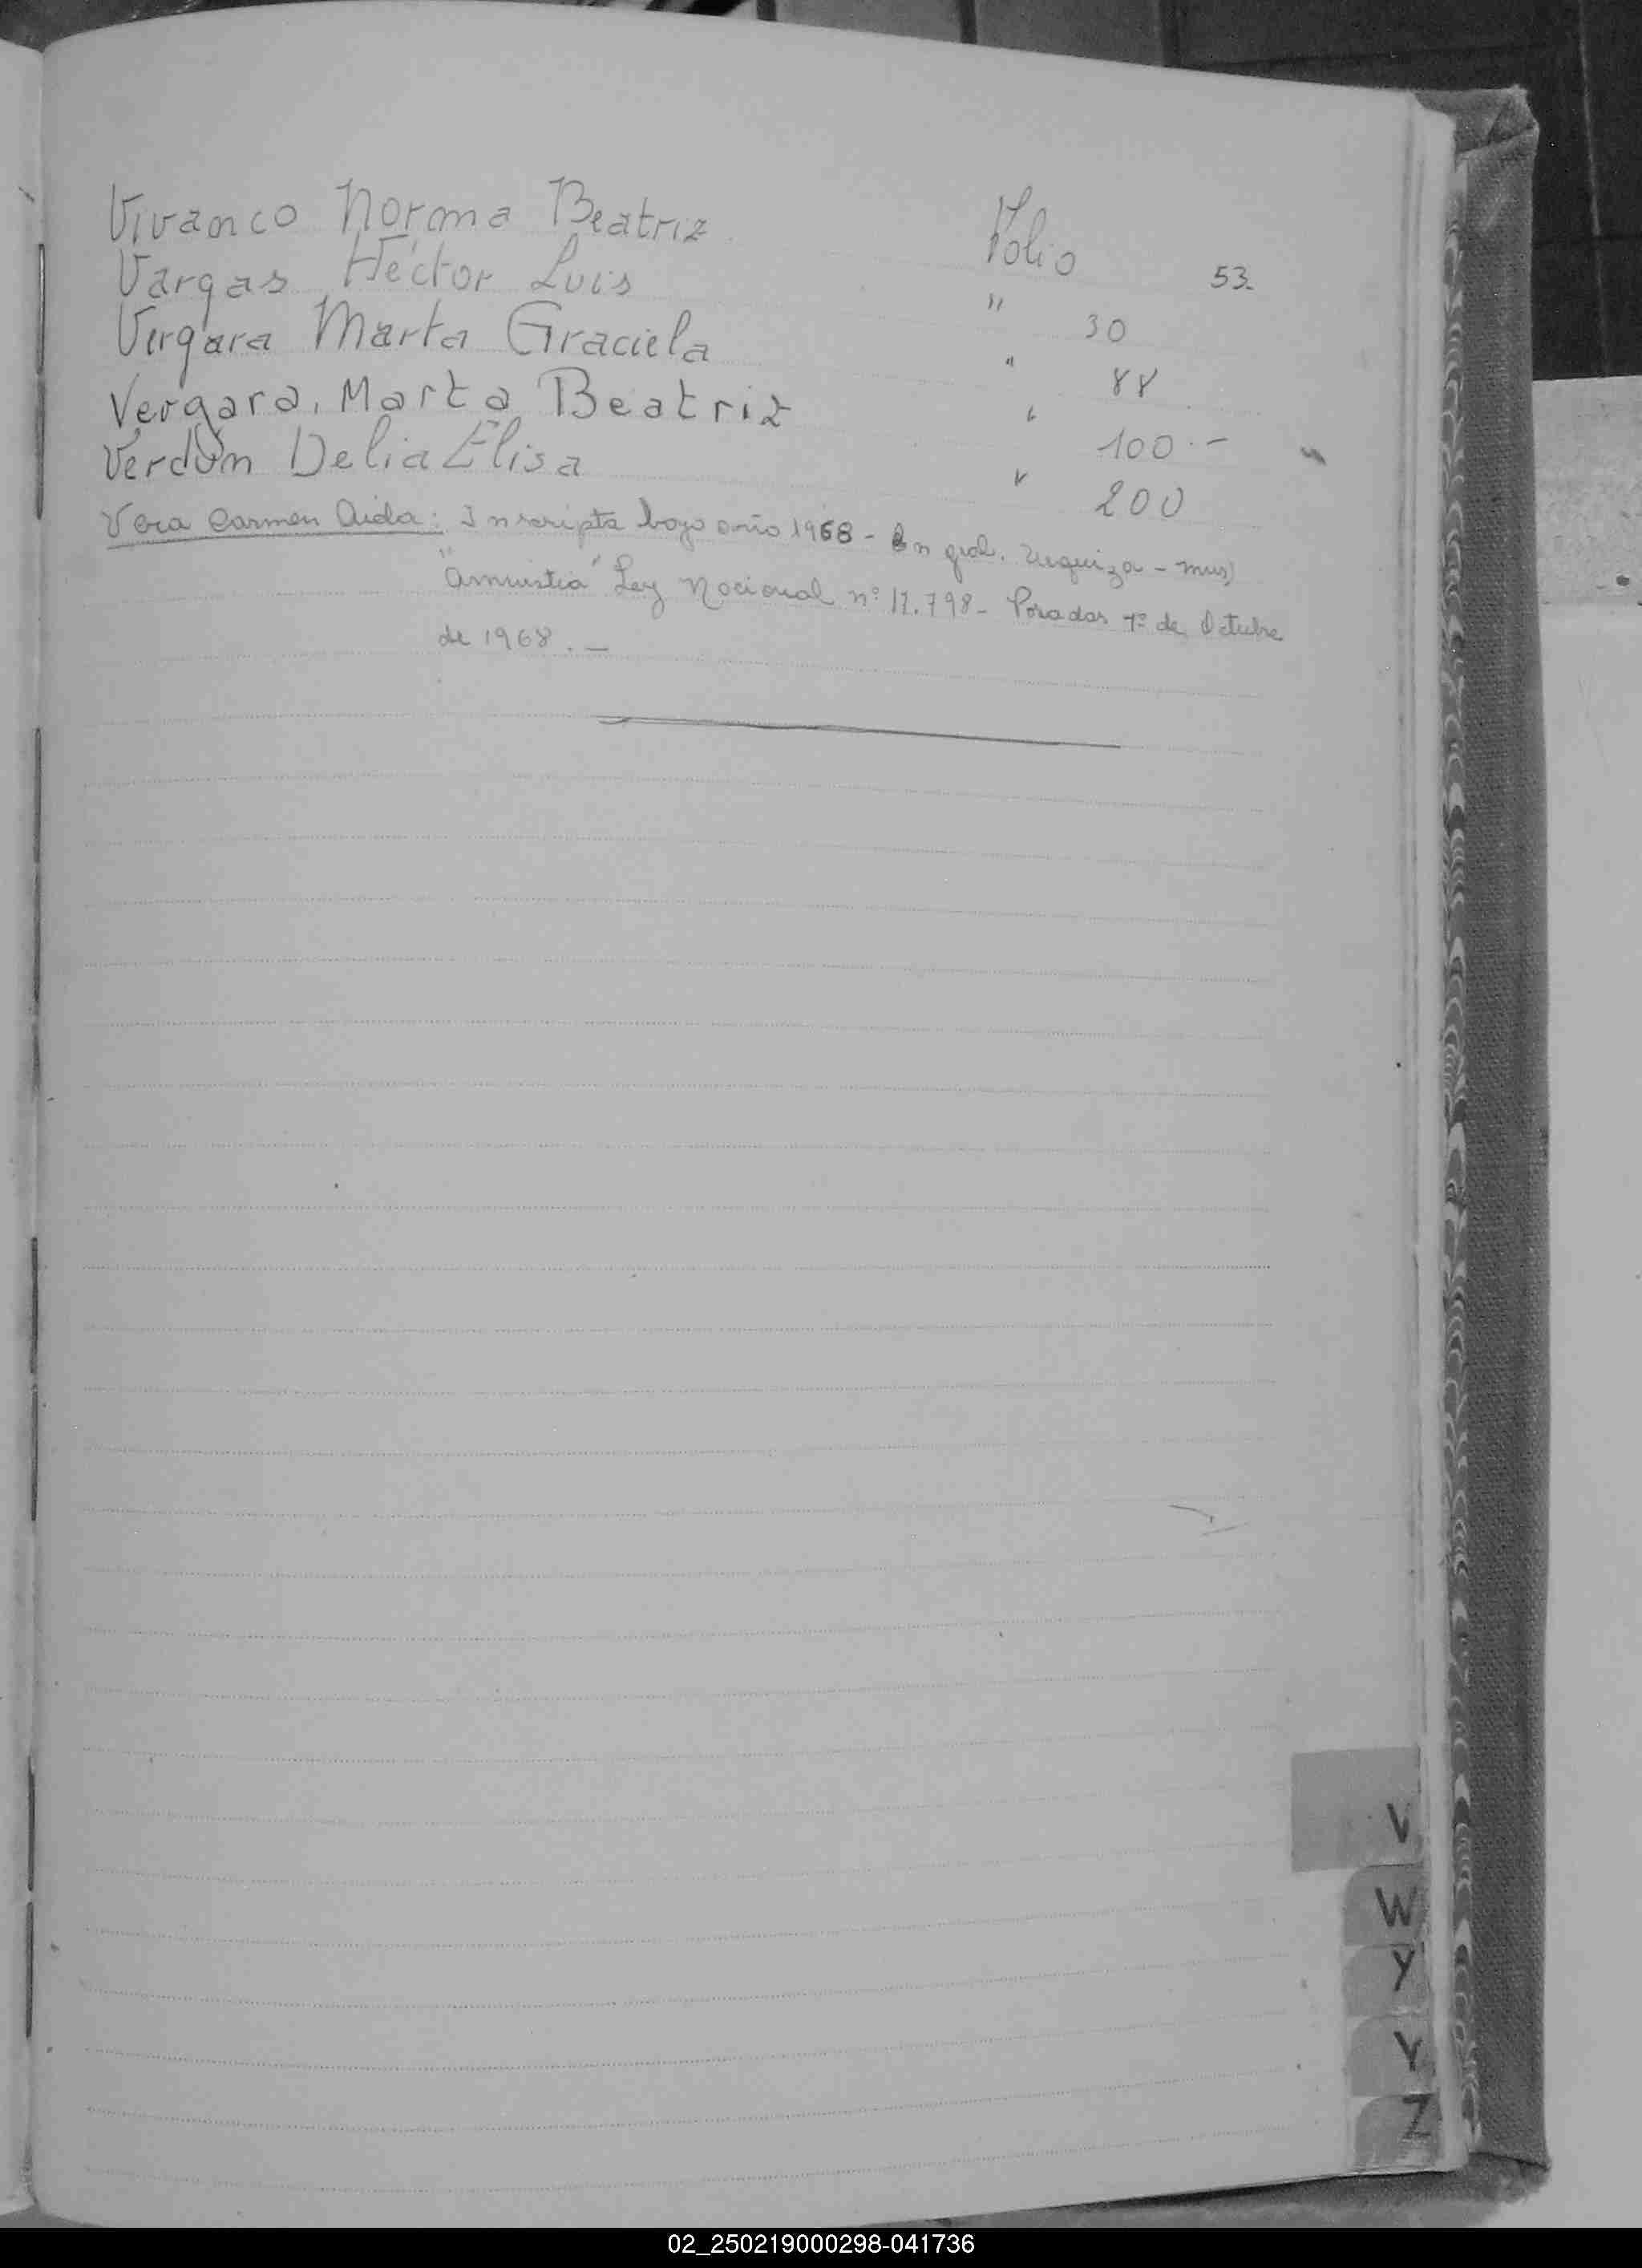 Vivanco Norma Beatriz Folio 53.
Vargas Héctor Luis " 30
Vergara Marta Graciela " 88
Vergara, Marta Beatriz " 100.-
Verdún Delia Elisa " 200
Vera Carmen Aida: Inscripta bajo año 1968 - En gral. Urquiza - mns)
"Amnistia" Ley Nacional nº 17.798 - Posadas 1º de Octubre
de 1968. -
V
W
Y
Y
Z
02_250219000298-041736